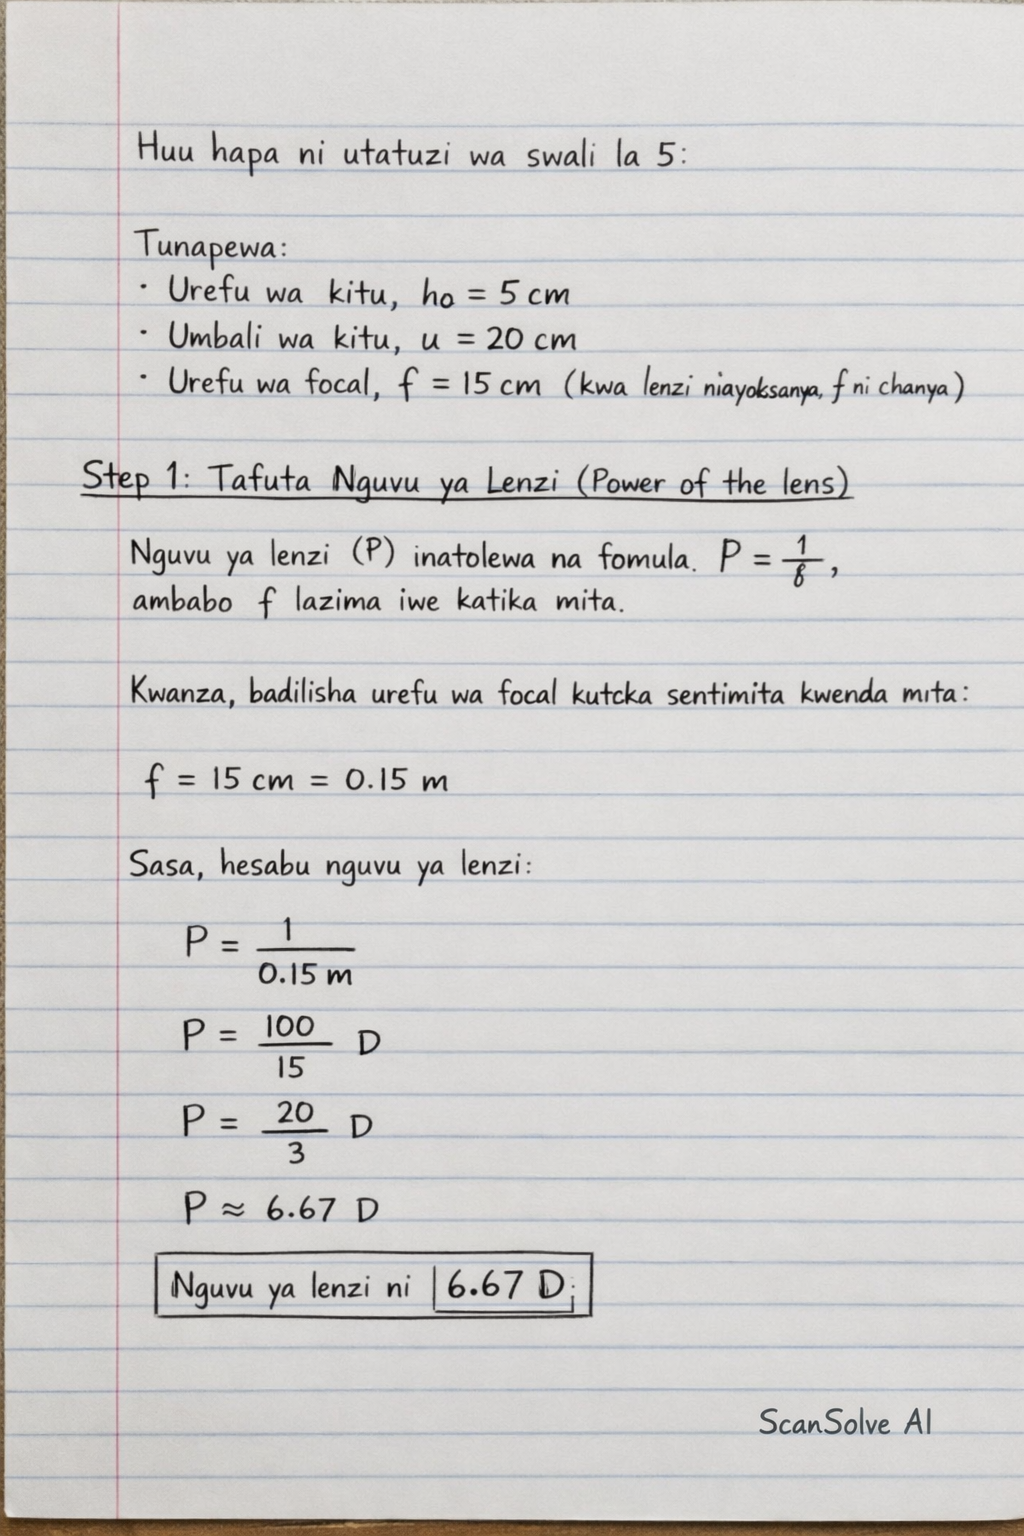 Huu hapa ni utatuzi wa swali la 5:
Tunapewa:
· Urefu wa kitu, ho = 5 cm
· Umbali wa kitu, u = 20 cm
· Urefu wa focal, f = 15 cm (kwa lenzi niayoksanya, f ni chanya)
Step 1: Tafuta Nguvu ya Lenzi (Power of the lens)
Nguvu ya lenzi (P) inatolewa na fomula. P = 1/f,
ambabo f lazima iwe katika mita.
Kwanza, badilisha urefu wa focal kutcka sentimita kwenda mita:
f = 15 cm = 0.15 m
Sasa, hesabu nguvu ya lenzi:
P = 1/0.15 m
P = 100/15 D
P = 20/3 D
P ≈ 6.67 D
Nguvu ya lenzi ni 6.67 D
ScanSolve AI